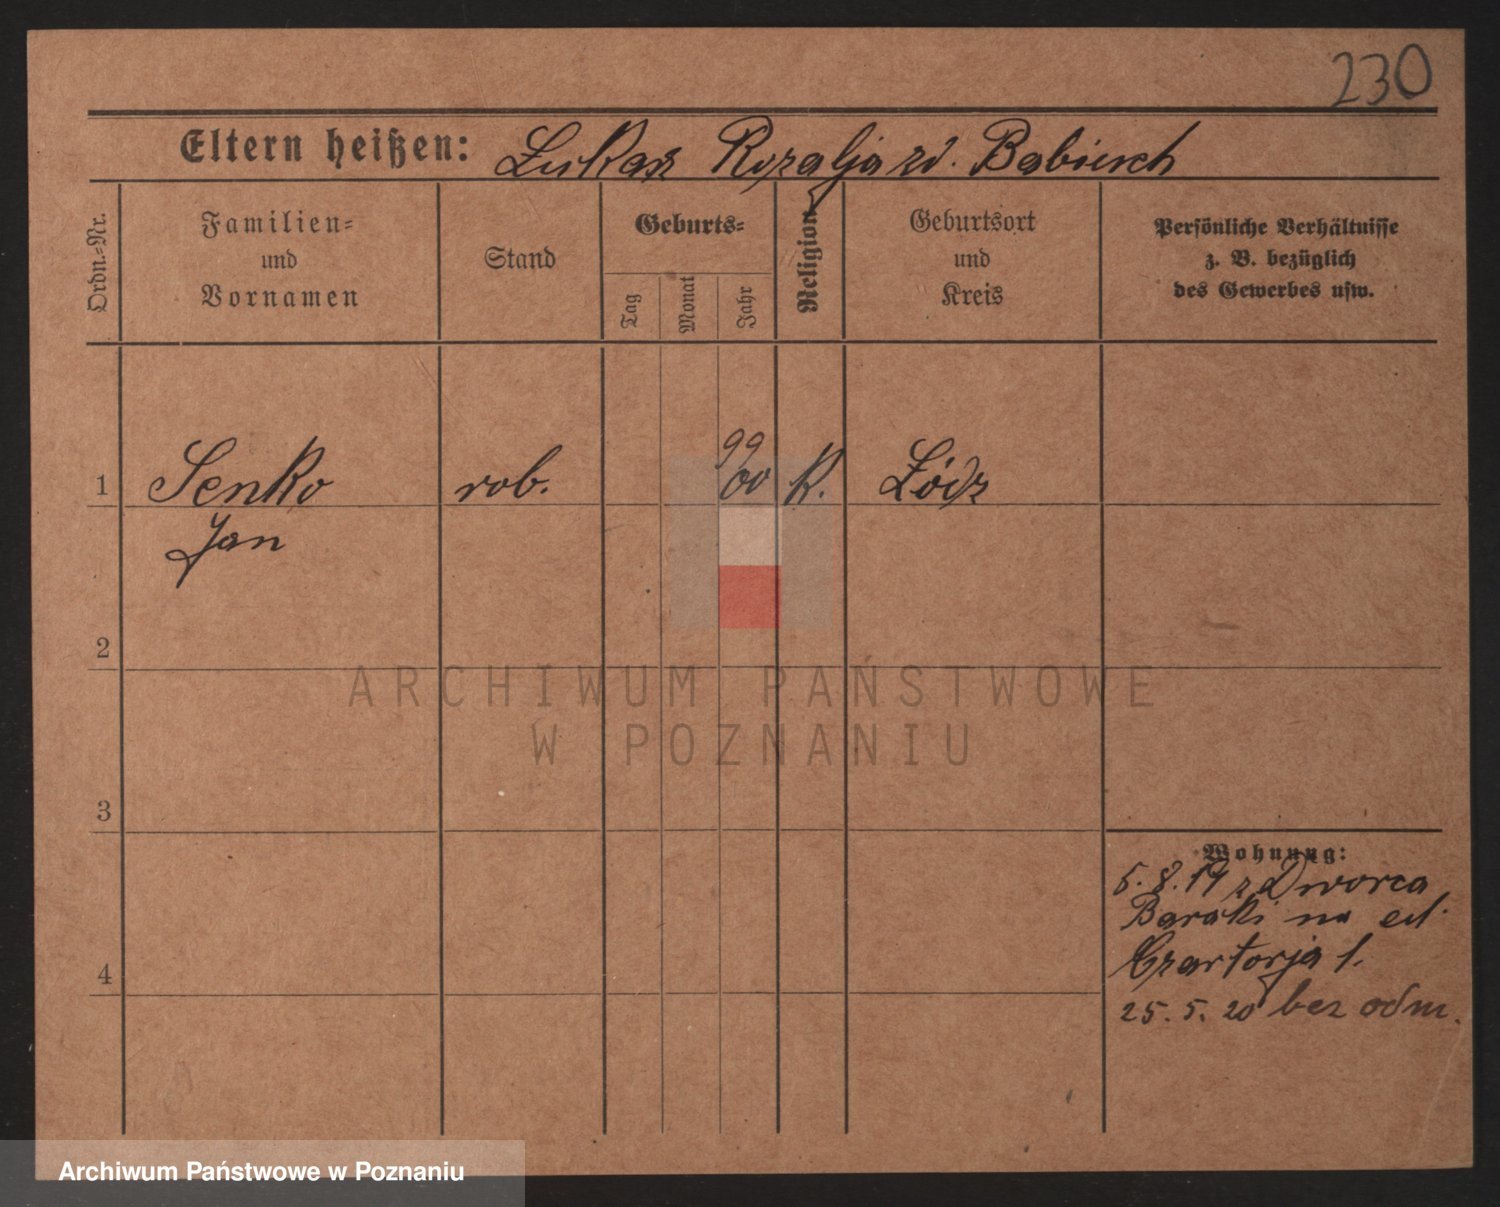 230
Eltern heißen: Lukasz Rozalja zd. Babiuch
Ordn.-Nr.
Familien-
und
Vornamen
Stand
Geburts-
Tag
Monat
Jahr
Religion
Geburtsort
und
Kreis
Persönliche Verhältnisse
z. B. bezüglich
des Gewerbes usw.
99
1 Senko rob. 00 K. Łódz
Jan
2
3
4
Wohnung:
5.8.19 z Dworca
Baraki na
Czartorja 1.
25.5.20 bez odm.
ARCHIWUM PAŃSTWOWE
W POZNANIU
Archiwum Państwowe w Poznaniu